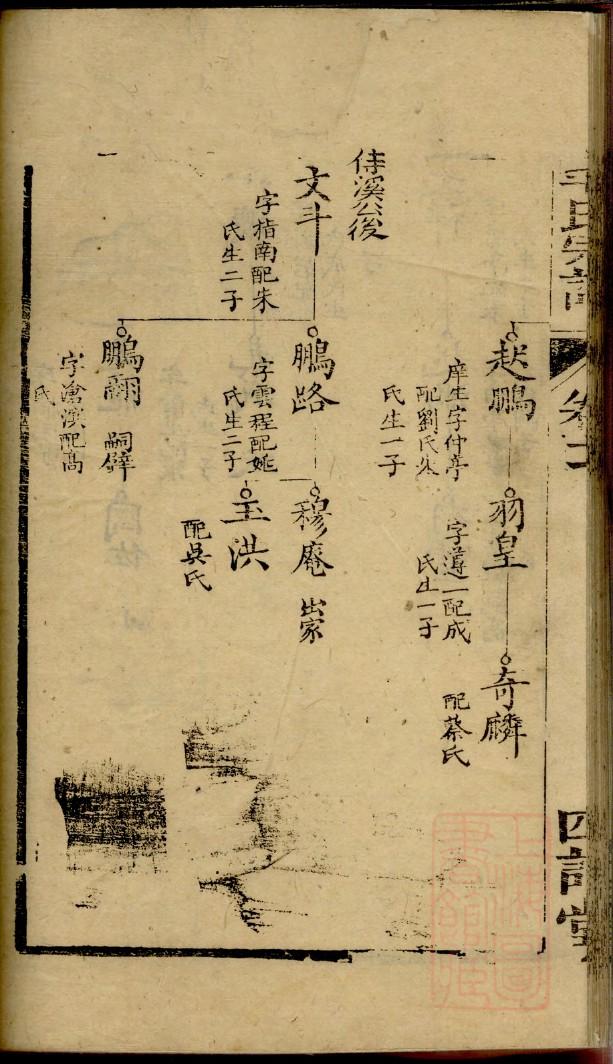 氏宗譜
卷二
四詩堂
赴鵬
庠生字仲亭
配劉氏朱
氏生一子
羽皇
字遵一配成
氏生一子
奇麟
配蔡氏
侍溪公後
文斗
字指南配朱
氏生二子
鵬路
字雲程配姚
氏生二子
穆庵 出家
玉洪
配吳氏
鵬翮 嗣僻
字滄溟配高
氏